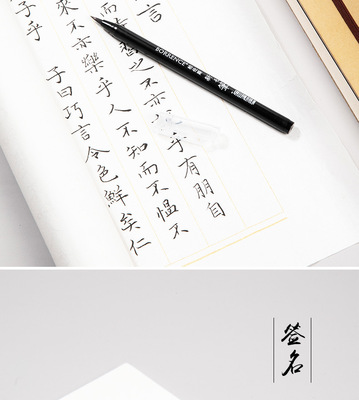 言
而習之不亦乎有朋自
來不亦樂乎人不知而不愠不
子乎 子曰巧言令色鮮矣仁
签名